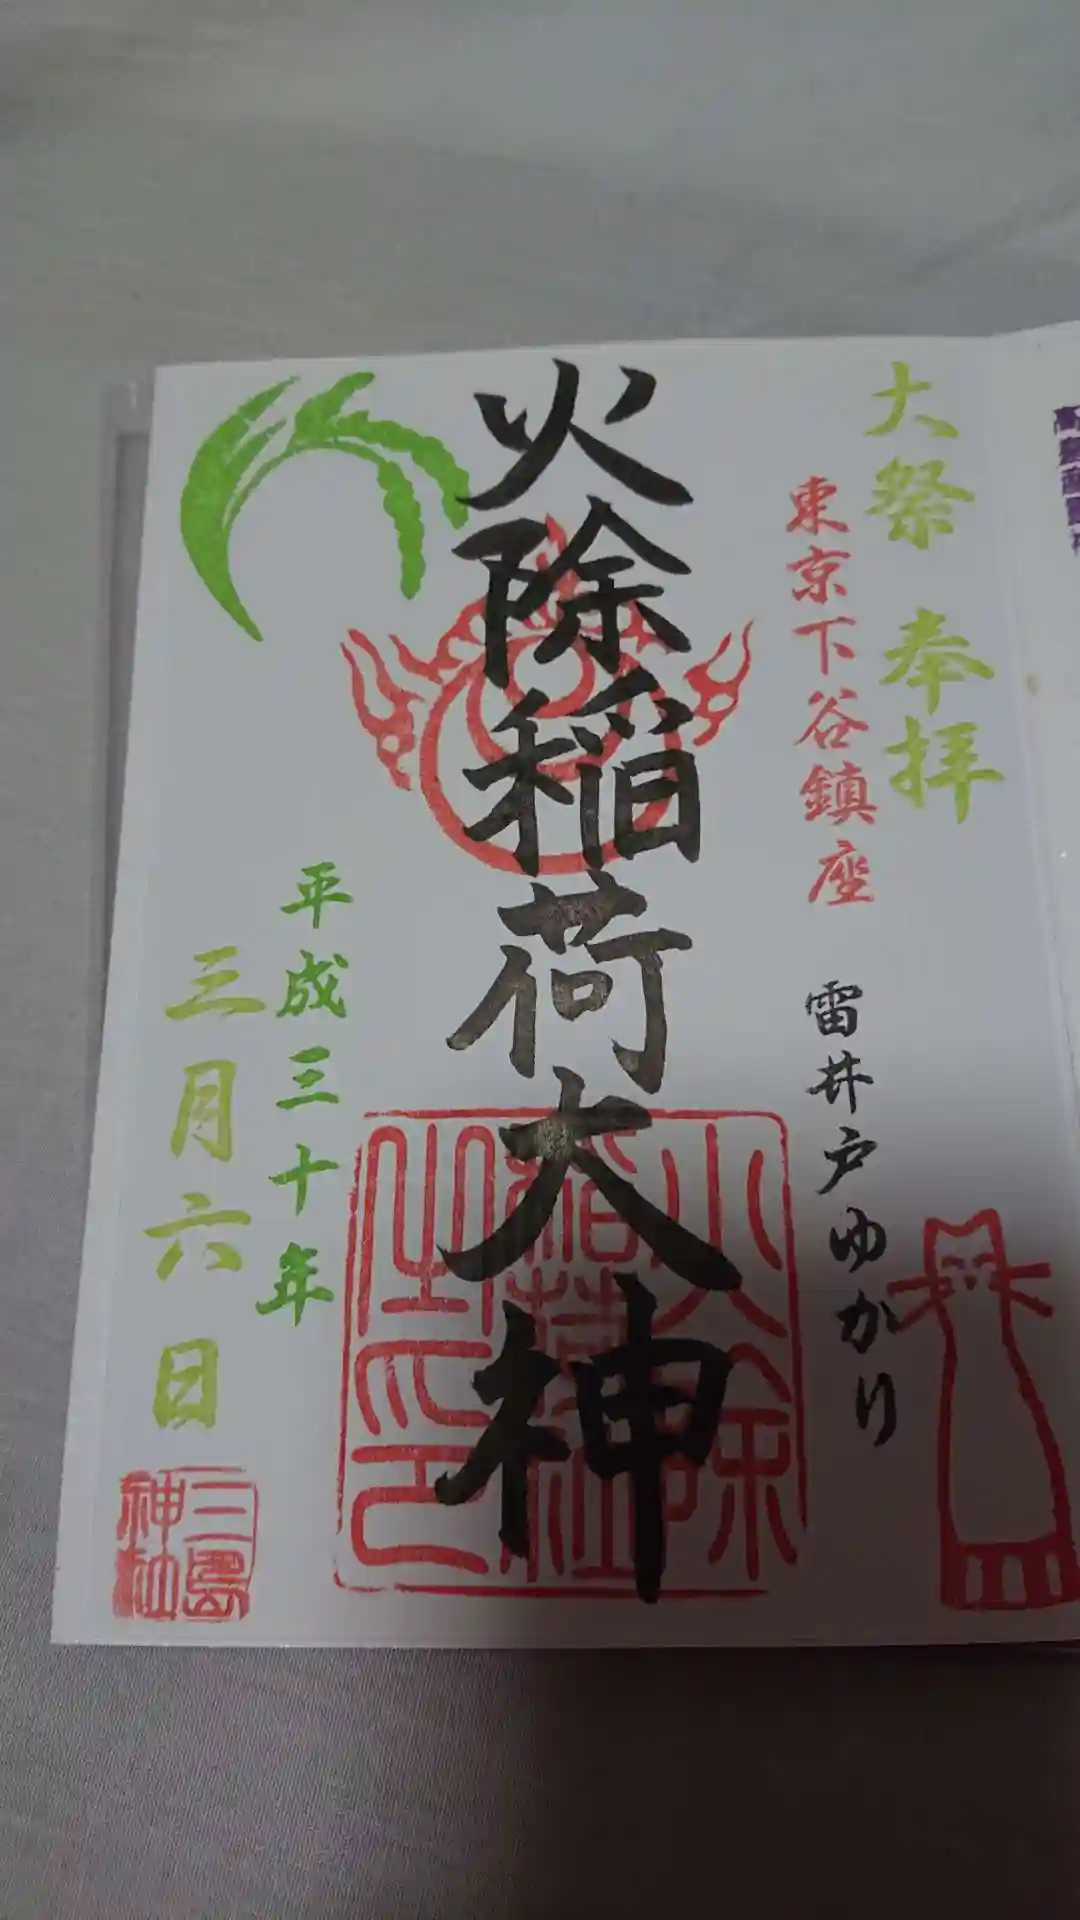 大祭 奉拝
東京下谷鎮座
雷井戸ゆかり
火除稲荷大神
火除
稲荷社
之印
平成三十年
三月六日
三島
神社